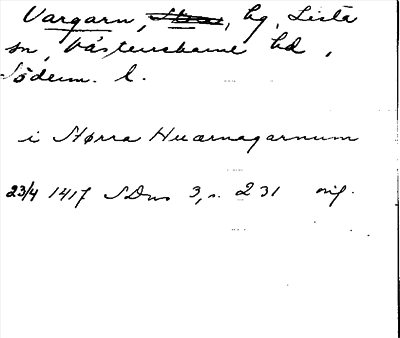 Vargarn, Stora, hg, Lista
sn, Västerrekarne hd,
Söderm. l.
i Størra Huarnagarnum
23/4 1417 SDns 3, s. 231 orig.